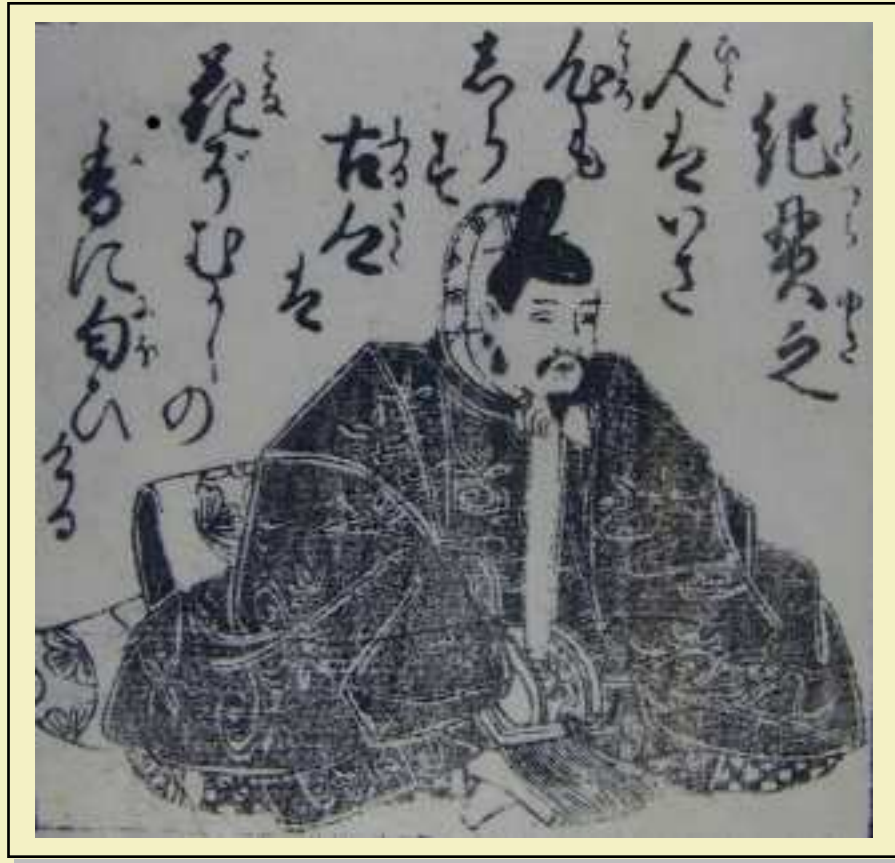 紀貫之
人はいさ
心も
しら
ず
古郷
は
花ぞむかしの
香に匂ひ
ける